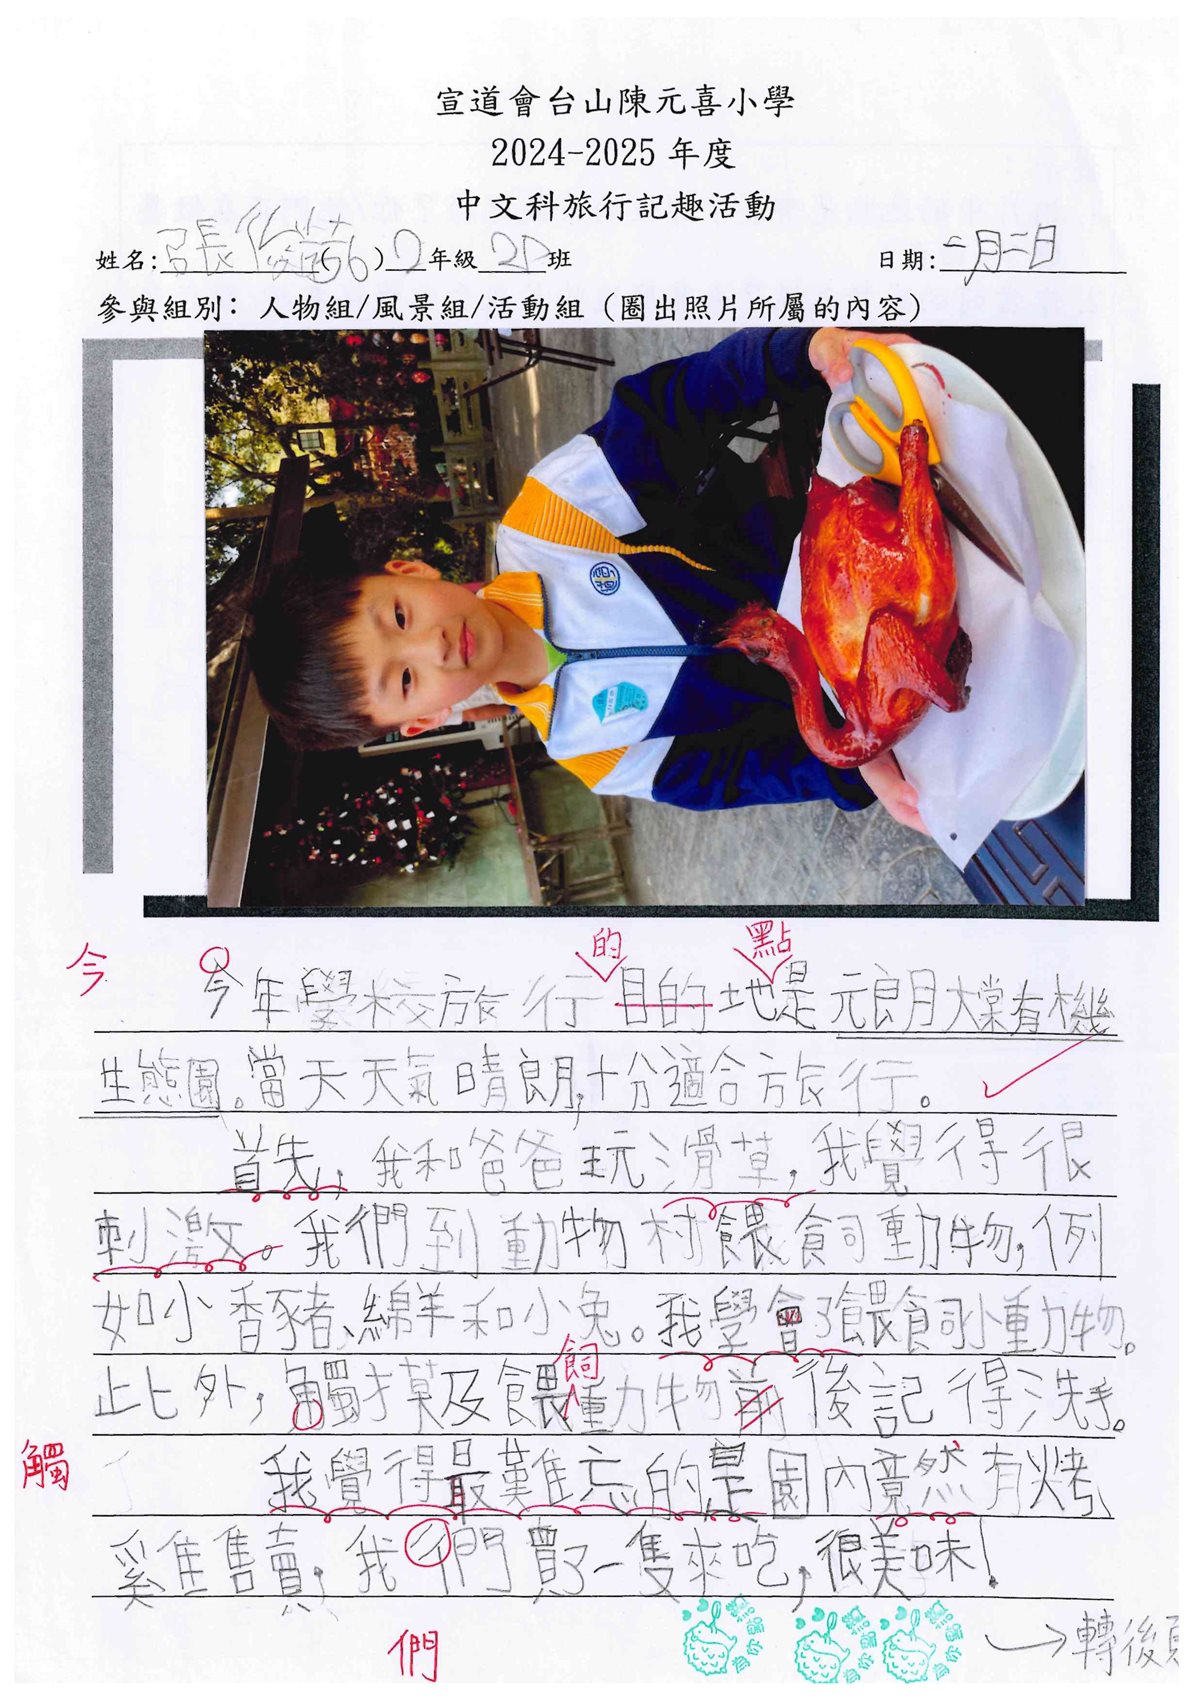 宣道會台山陳元喜小學
2024-2025 年度
中文科旅行記趣活動
姓名:張俊 (6)2年級2D班 日期:二月二日
參與組別: 人物組/風景組/活動組 (圈出照片所屬的內容)
的 點
今 今年學校旅行目的地是元朗大棠有機
生態園。當天天氣晴朗,十分適合旅行。
首先,我和爸爸玩滑草,我覺得很
刺激。我們到動物村餵飼動物,例
如小香豬、綿羊和小兔。我學會了餵飼小動物。
飼
此外,觸摸及餵動物前後記得洗手。
觸 我覺得最難忘的是園內竟然有烤
雞售賣,我們買了一隻來吃,很美味!
們
→轉後頁